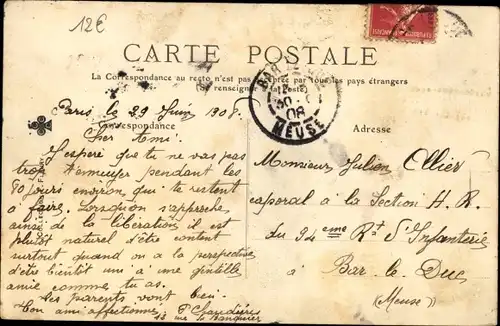 12€
RÉPUBLIQUE FRANÇAISE
CARTE POSTALE
La Correspondance au recto n'est pas acceptée par tous les pays étrangers
(Se renseigner à la Poste)
BAR
30
08
MEUSE
Correspondance
Adresse
Paris le 29 Juin 1908.
Cher Ami.
J'espère que tu ne vas pas
trop t'ennuyer pendant les
80 jours environ, qui te restent
à faire. Lorsqu'on s'approche,
ainsi de la libération, il est
plutôt naturel d'être content
surtout quand on a la perspective
d'être bientôt uni à une gentille
amie comme tu as.
Tes parents vont bien.
Ton ami affectionné, P. Chaudière
rue le Banquier
Monsieur Julien Ollier
caporal à la Section H. R.
du 94eme Rt d'Infanterie
à Bar-le-Duc
(Meuse)